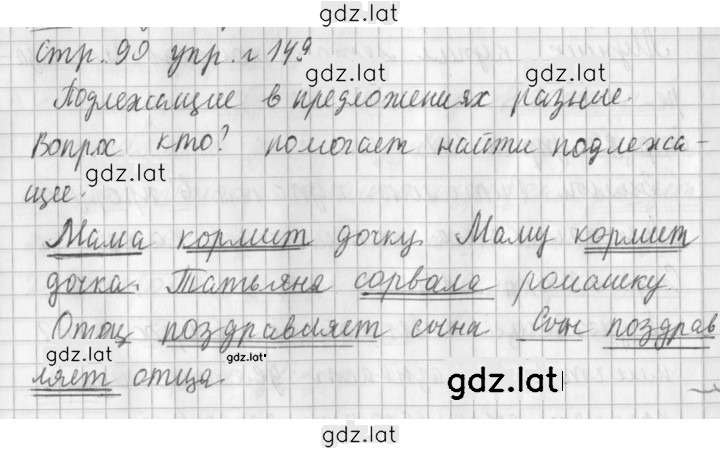 gdz.lat
стр. 90 упр. г 149
gdz.lat
Подлежащие в предложениях разные.
Вопрос кто? помогает найти подлежа-
gdz.lat
щее.
Мама кормит дочку. Маму кормит
дочка. Татьяна сорвала ромашку.
Отец поздравляет сына Сын поздрав
gdz.lat gdz.lat
ляет отца. gdz.lat
gdz.lat